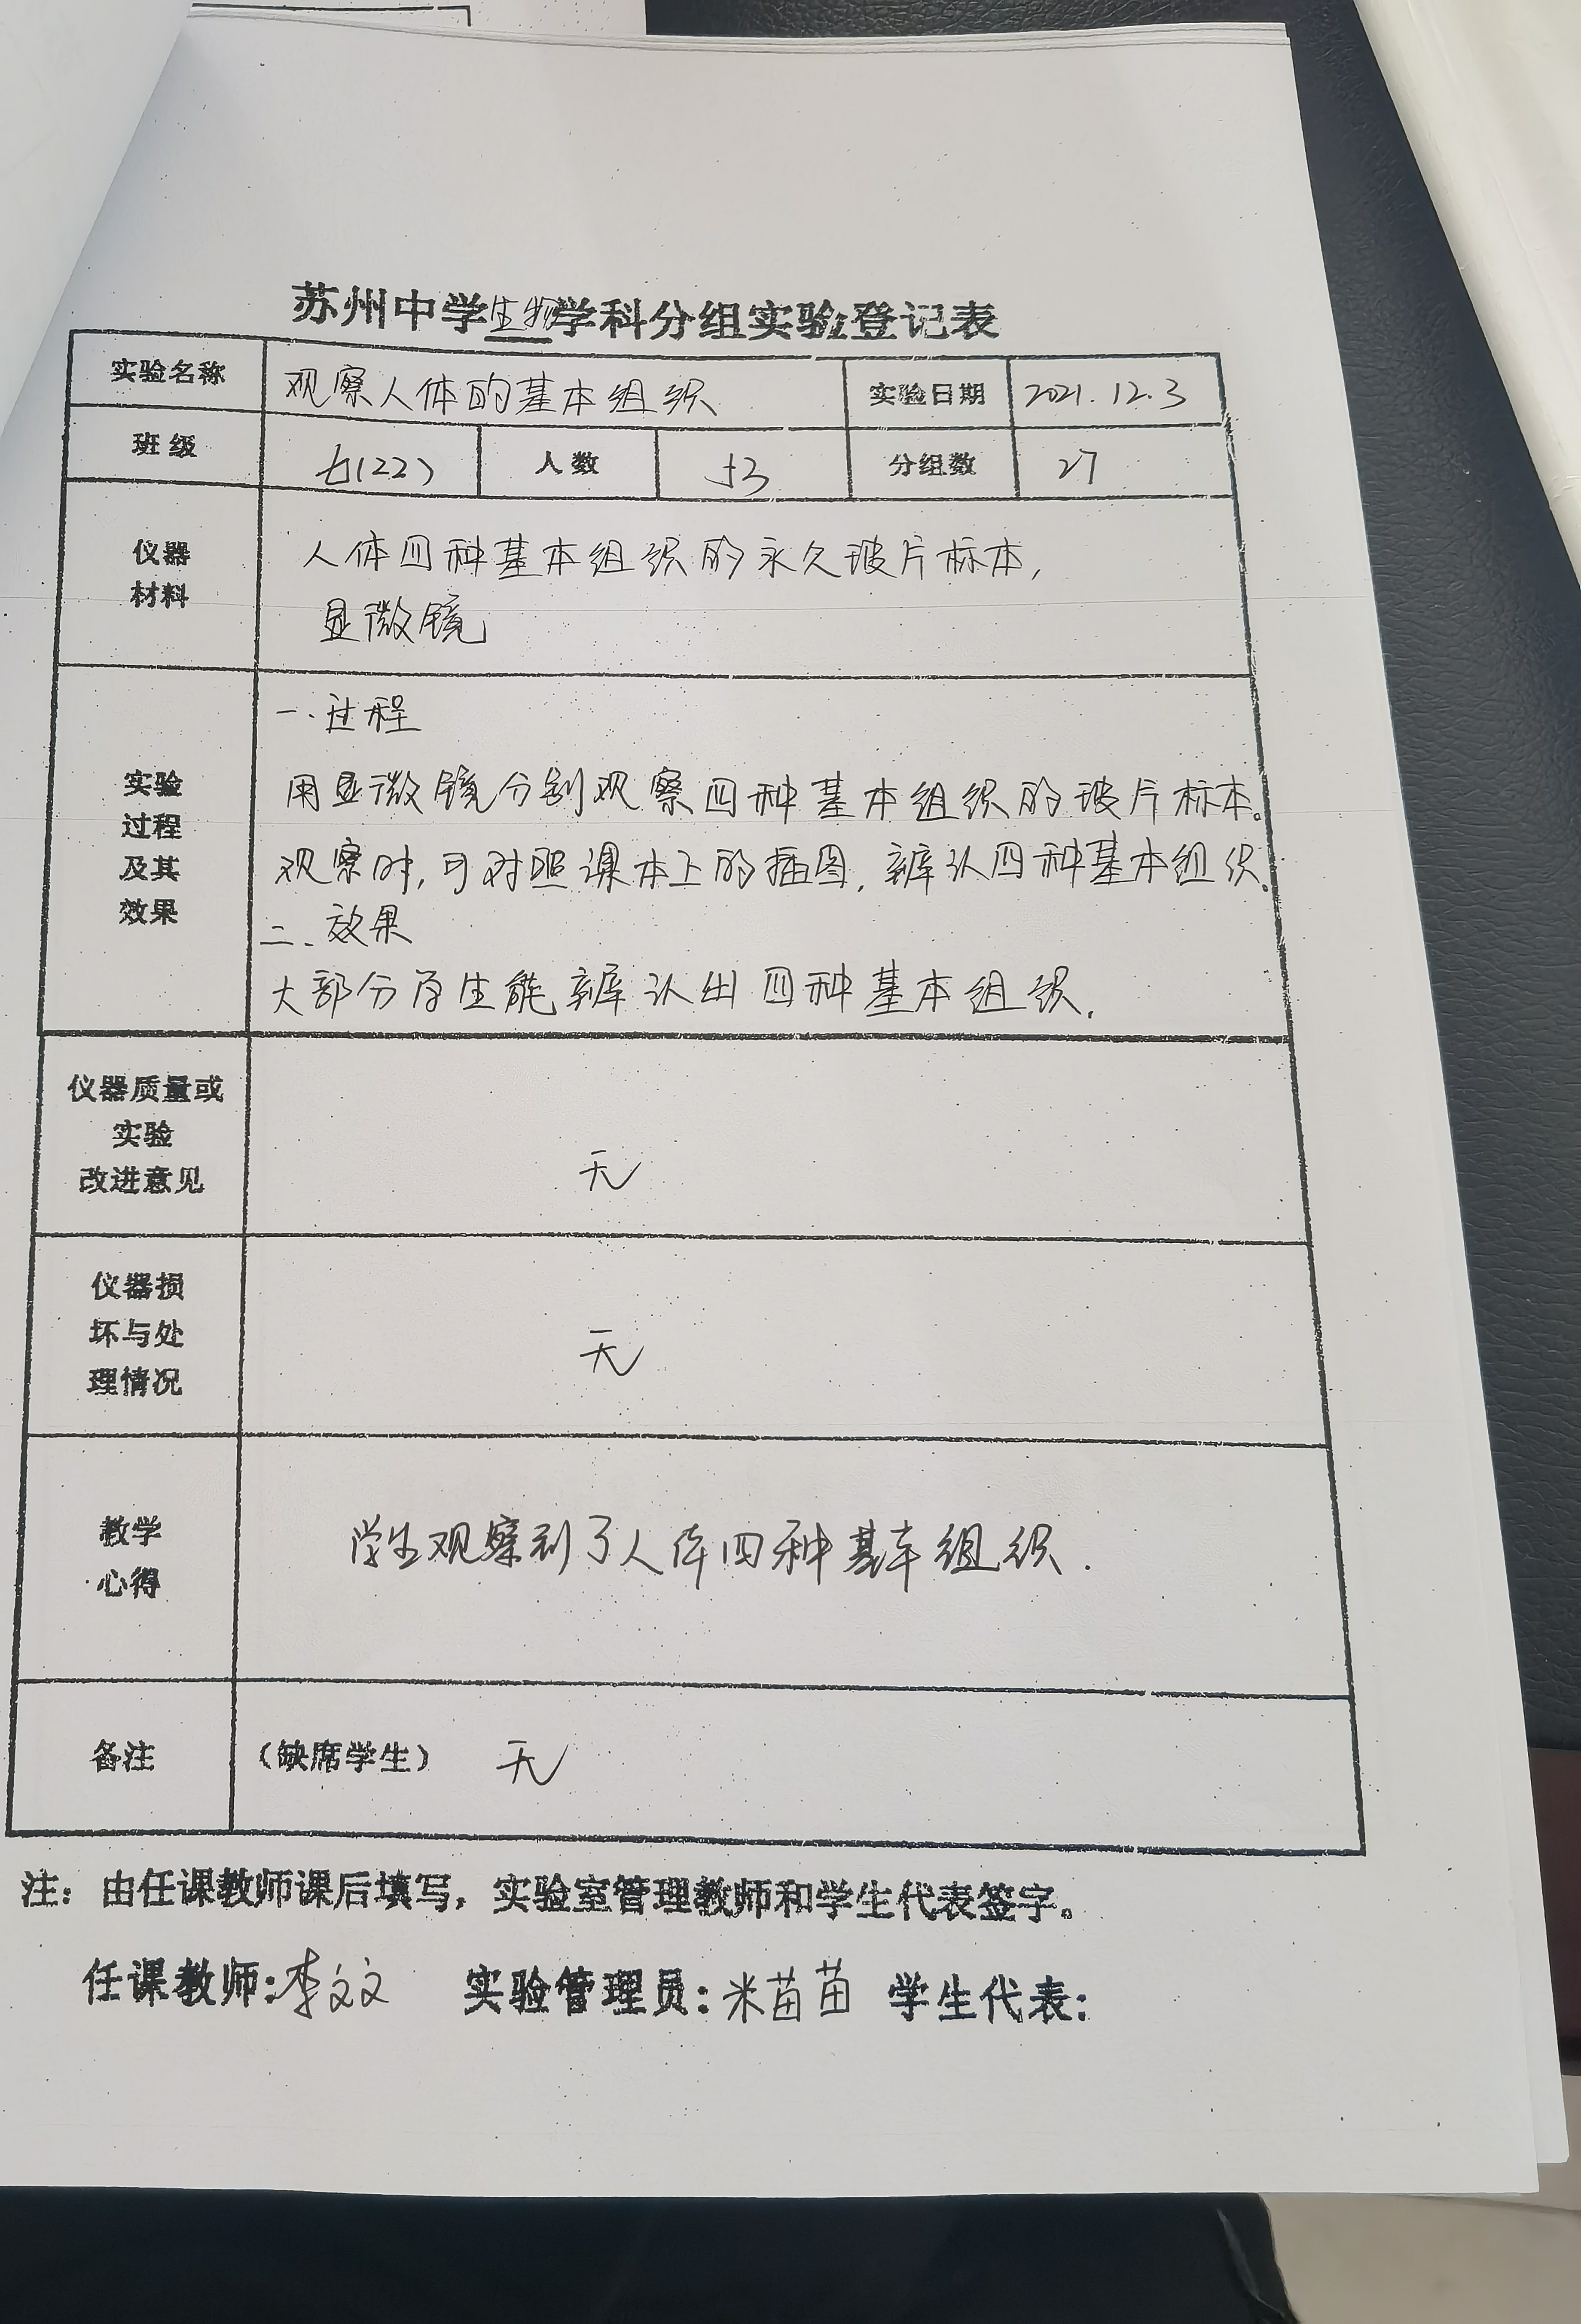 苏州中学生物学科分组实验登记表
实验名称 观察人体的基本组织 实验日期 2021.12.3
班级 七(22) 人数 53 分组数 27
仪器
材料
人体四种基本组织的永久玻片标本,
显微镜
实验
过程
及其
效果
一.过程
用显微镜分别观察四种基本组织的玻片标本。
观察时,可对照课本上的插图,辨认四种基本组织.
二、效果
大部分学生能辨认出四种基本组织.
仪器质量或
实验
改进意见
无
仪器损
坏与处
理情况
无
教学
心得
学生观察到了人体四种基本组织.
备注 (缺席学生) 无
注：由任课教师课后填写，实验室管理教师和学生代表签字。
任课教师:李文文 实验管理员:米苗苗 学生代表: